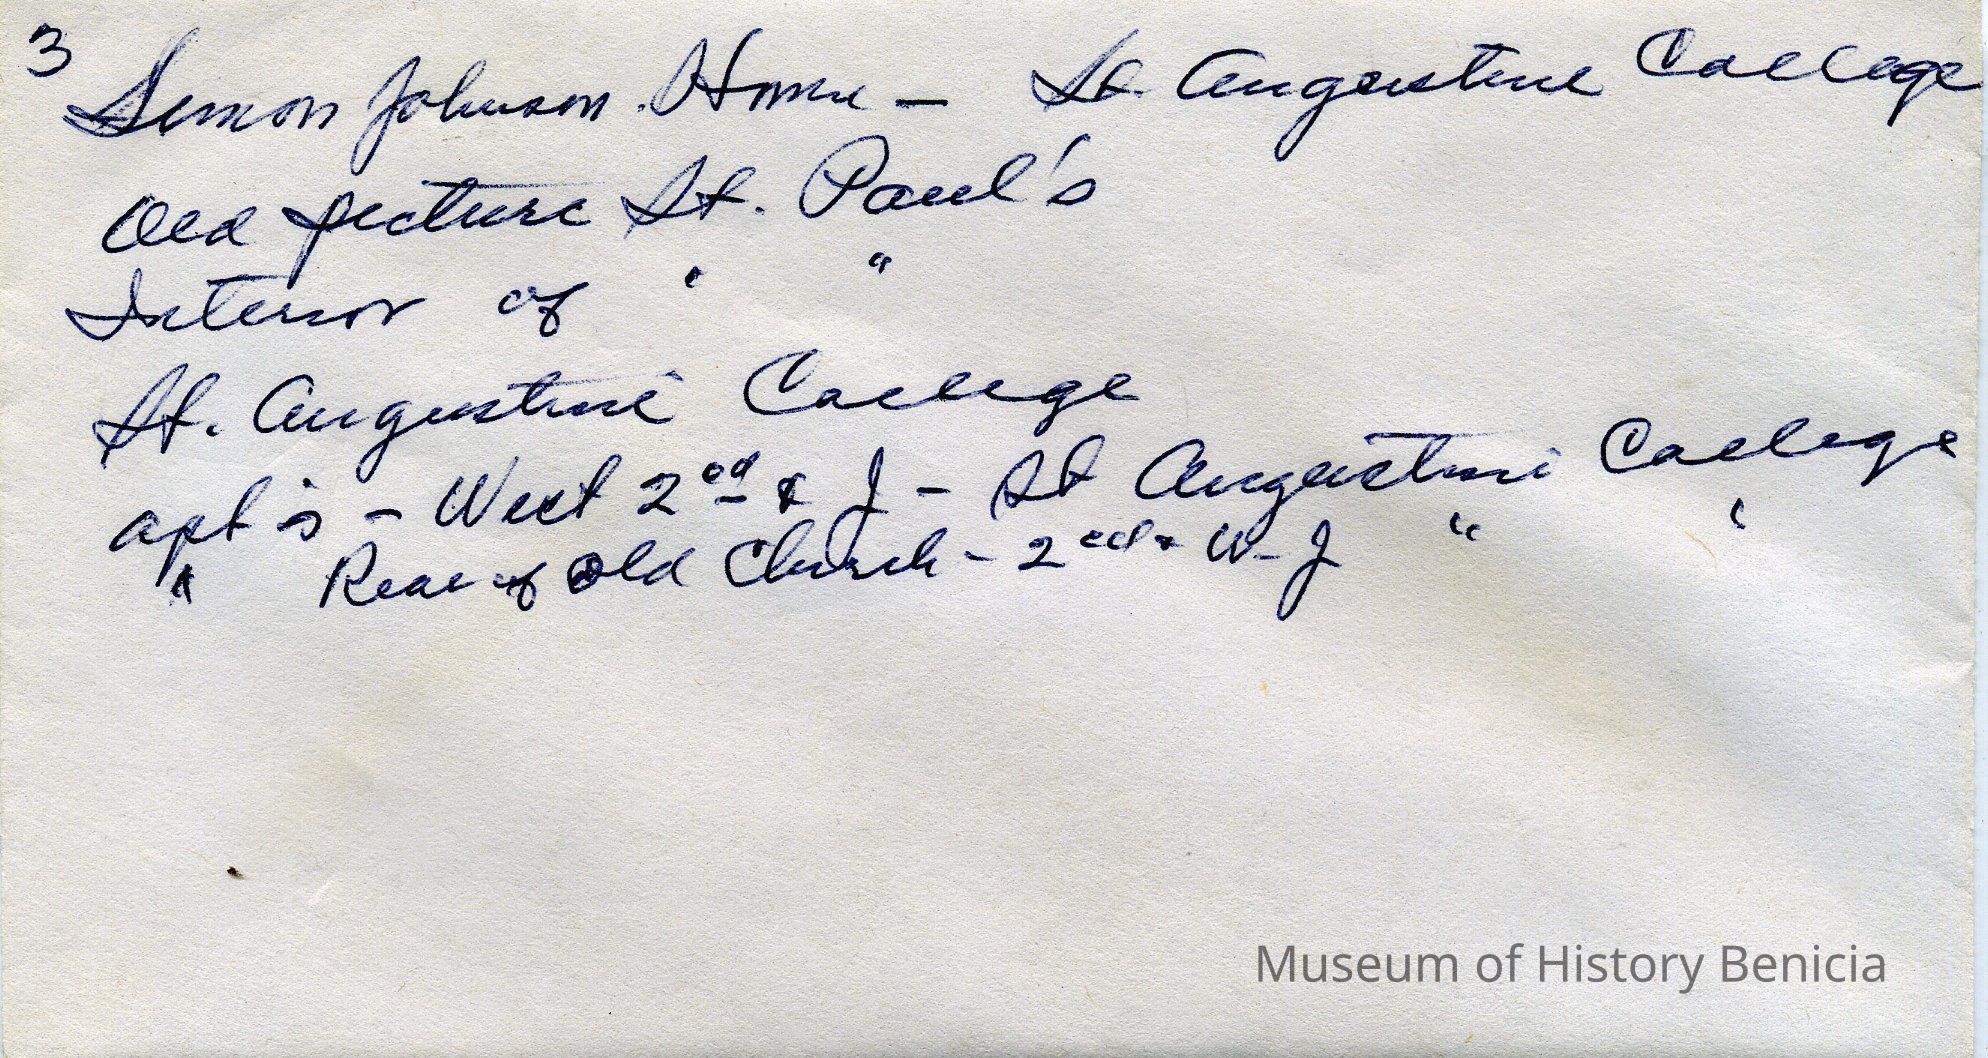 3
Simon Johnson Home - St. Augustine College
Old picture St. Paul's
Interior of " "
St. Augustine College
apt's - West 2nd & J - St Augustine College
" Rear of Old Church - 2nd & W-J " "
Museum of History Benicia